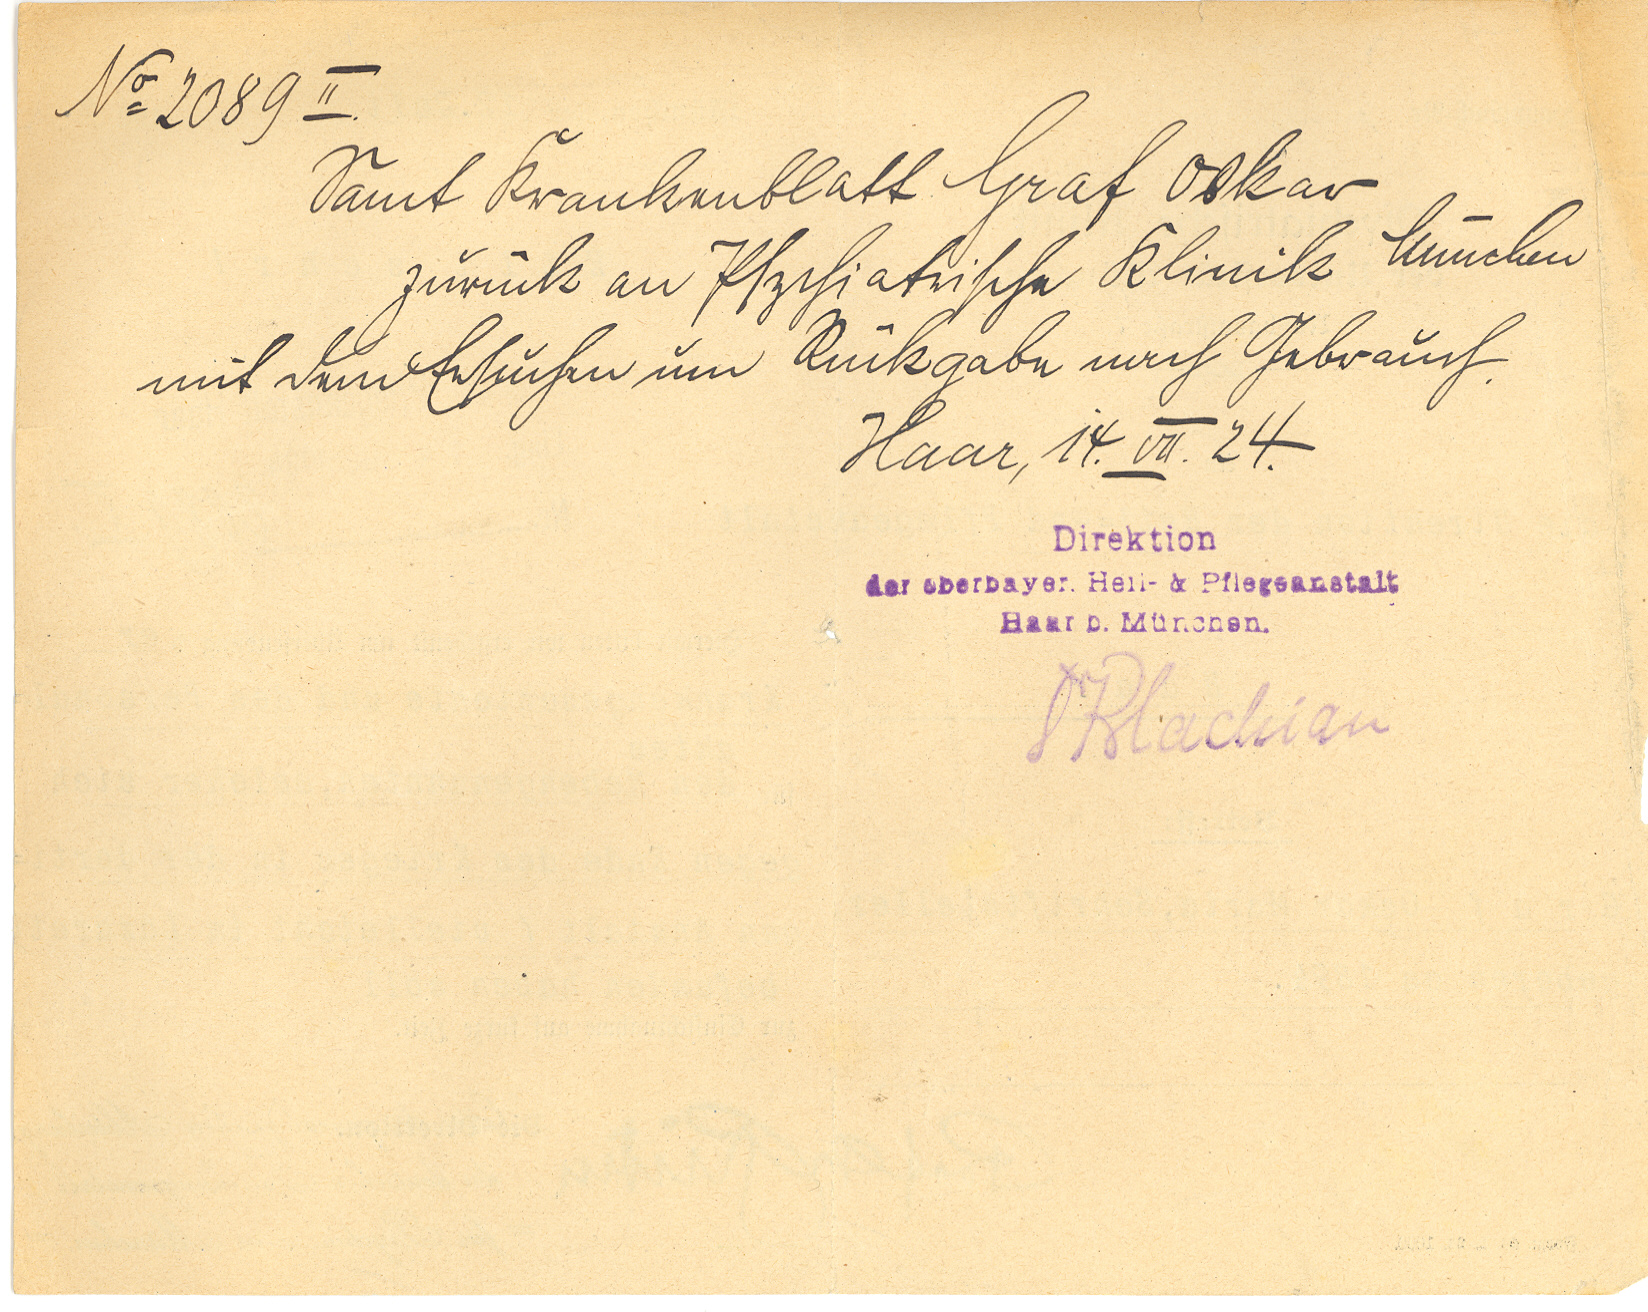 No 2089 II.
Samt Krankenblatt Graf Oskar
zurück an Psychiatrische Klinik München
mit dem Ersuchen um Rückgabe nach Gebrauch.
Haar, 14. VII. 24.
Direktion
der oberbayer. Heil- & Pflegeanstalt
Haar b. München.
Dr Blachian